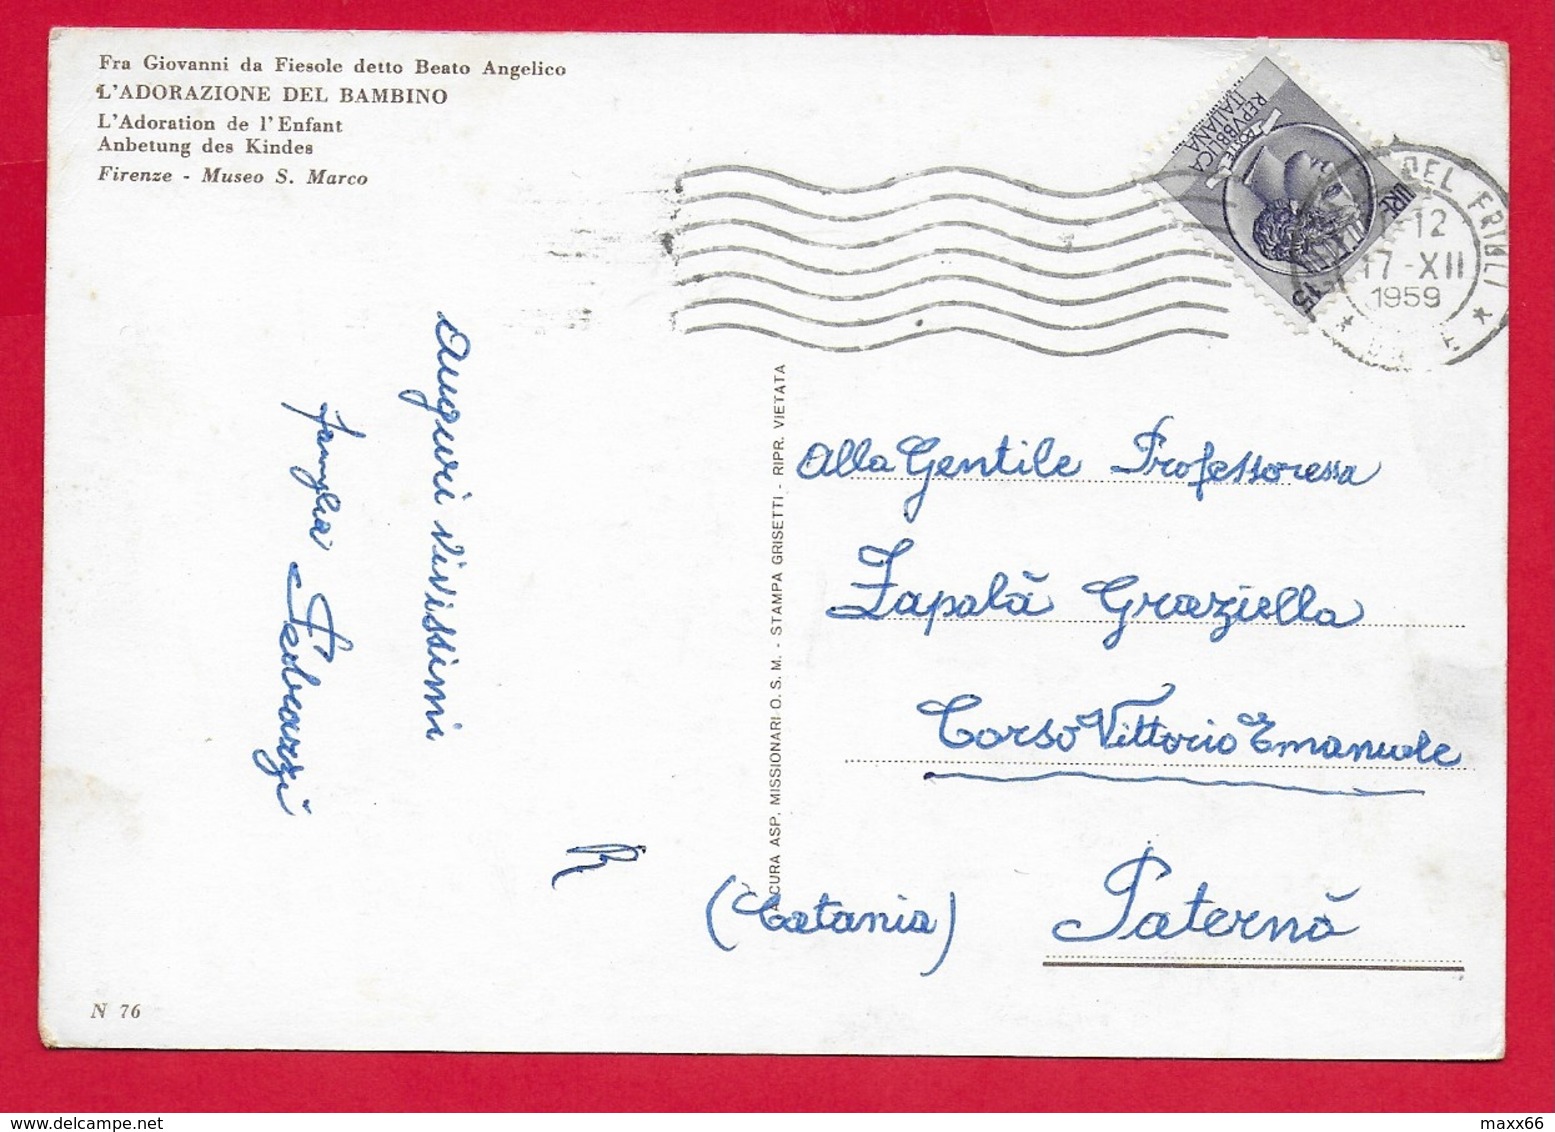 Fra Giovanni da Fiesole detto Beato Angelico
L'ADORAZIONE DEL BAMBINO
L'Adoration de l'Enfant
Anbetung des Kindes
Firenze - Museo S. Marco
REPVBBLICA
ITALIANA
POSTE
LIRE
15
DEL FRIULI
12
17-XII
1959
Auguri vivissimi
famiglia
A CURA ASP. MISSIONARI O. S. M. - STAMPA GRISETTI - RIPR. VIETATA
Alla Gentile Professoressa
Zapalà Graziella
Corso Vittorio Emanuele
Paternò
(Catania)
N 76
maxx66